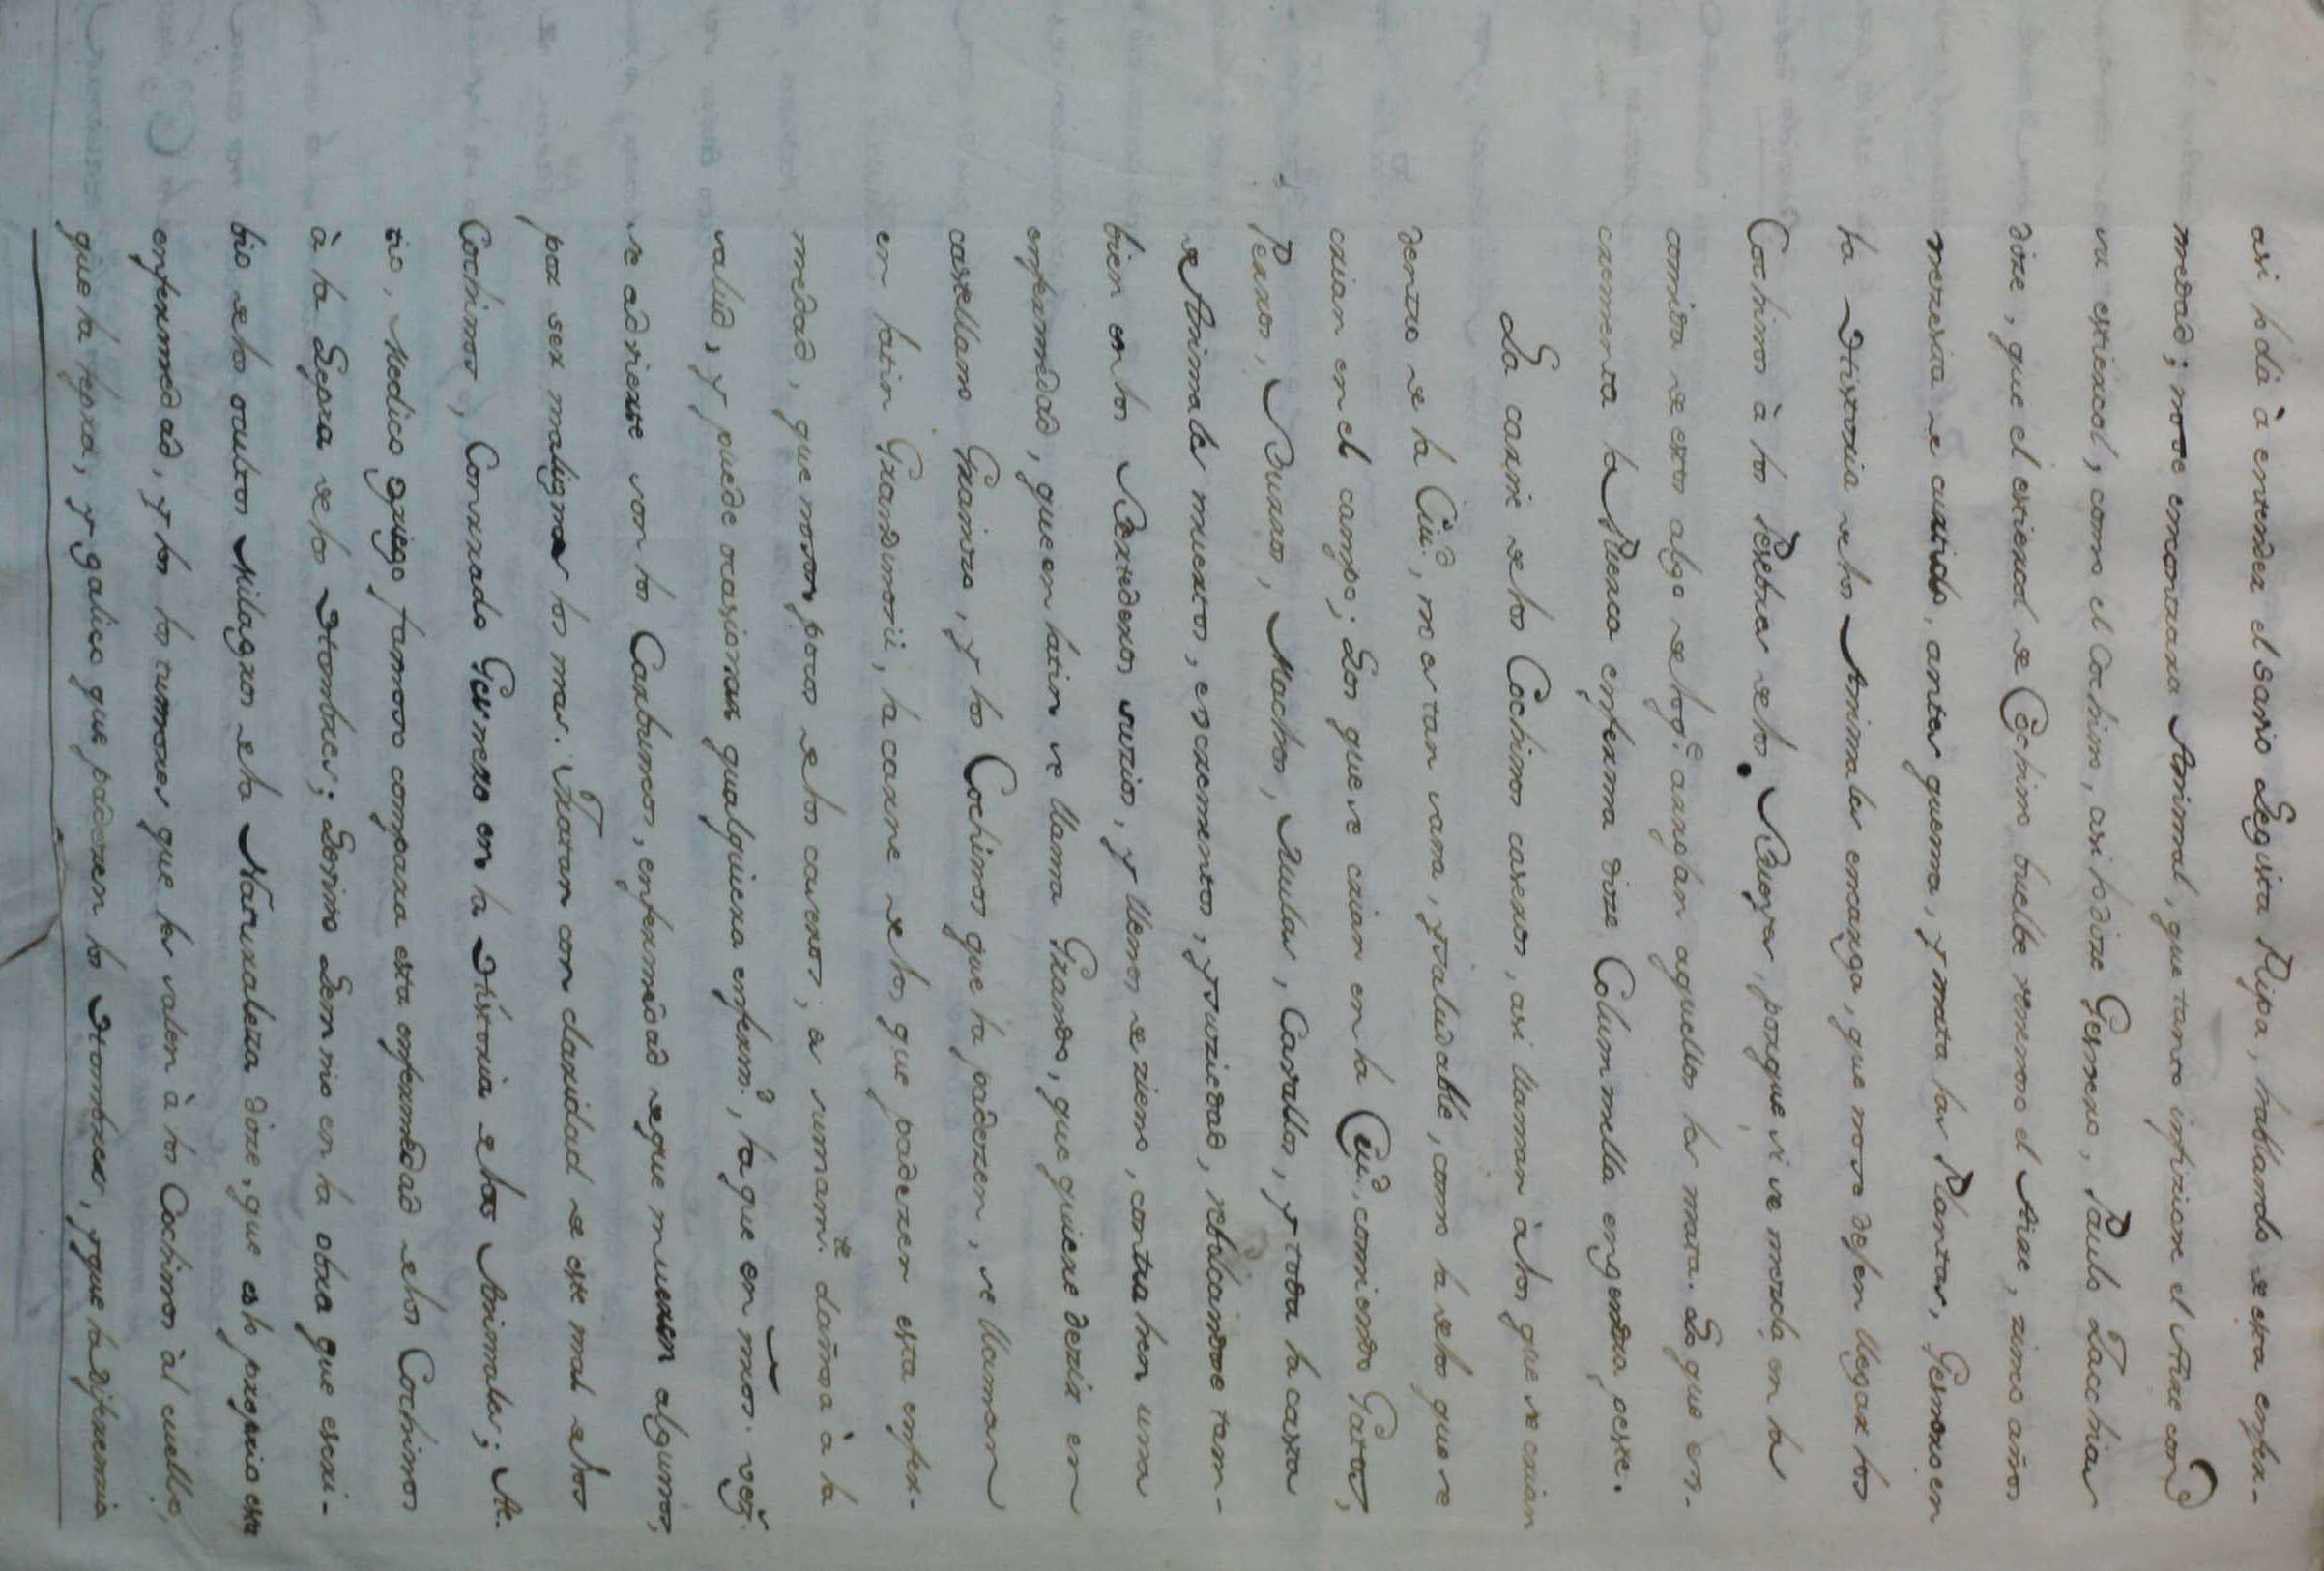 asi lo dà à entender el sabio Legista Ripa, hablando de esta enfer-
medad; no se encontrara Animal, que tanto infizione el Aire con
su estiercol, como el Cochino, asi lo dize Gesnero, Paulo Zacchias
dize, que el estiercol de Cochino buelbe venenoso el Aire, zinco años
nezesita de curtido, antes quema, y mata las Plantas, Gesnero en
la Historia de los Animales encarga, que no se dejen llegar los
Cochinos à los Pesebres de los Bueyes, porque si se mezcla en la
comida de estos algo de lo q.e arrojan aquellos los mata. Lo que es-
crementa la Puerca enferma dize Columnella engendra peste.
La carne de los Cochinos caseros, asi llaman à los que se crian
dentro de la Ciu.d, no es tan sana, y saludable, como la de los que se
crian en el campo; Los que se crian en la Ciu.d comiendo Gatos,
Perros, Burros, Machos, Mulas, Cavallos, y toda la casta
de Animales muertos, escrementos, y suziedad, rebolcandose tam-
bien en los Bertederos suzios, y llenos de zieno, contrahen una
enfermedad, que en latin se llama Grando, que quiere dezir en
castellano Granizo, y los Cochinos que la padezen, se llaman
en latin Grandinosii, la carne de los que padezen esta enfer-
medad, que no son pocos de los caseros; es sumam.te dañosa à la
salud, y puede ocasionar qualquiera enferm.d, la que en mños. vez.s
se advierte son los Carbuncos, enfermedad de que mueren algunos,
por ser malignos los mas. Tratan con claridad de este mal de los
Cochinos, Conrrado Gesnero en la Historia de los Animales; Ae-
tio, Medico griego famoso compara esta enfermedad de los Cochinos
à la Lepra de los Hombres; Levino Lemnio en la obra que escri-
bio de los ocultos Milagros de la Naturaleza dize, que es lo proprio esta
enfermedad, y los los tumores que les salen à los Cochinos àl cuello,
que la lepra, y galico que padezen los Hombres, y que la diferencia